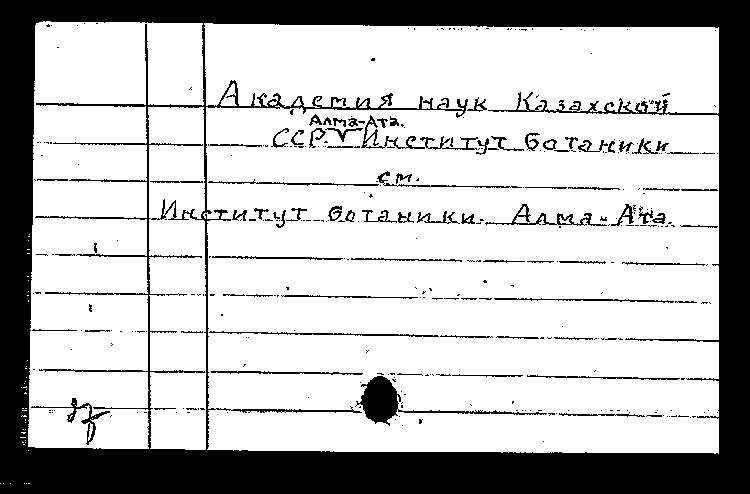 Академия наук Казахской
Алма-Ата.
ССР. V Институт ботаники
см.
Институт ботаники. Алма-Ата.